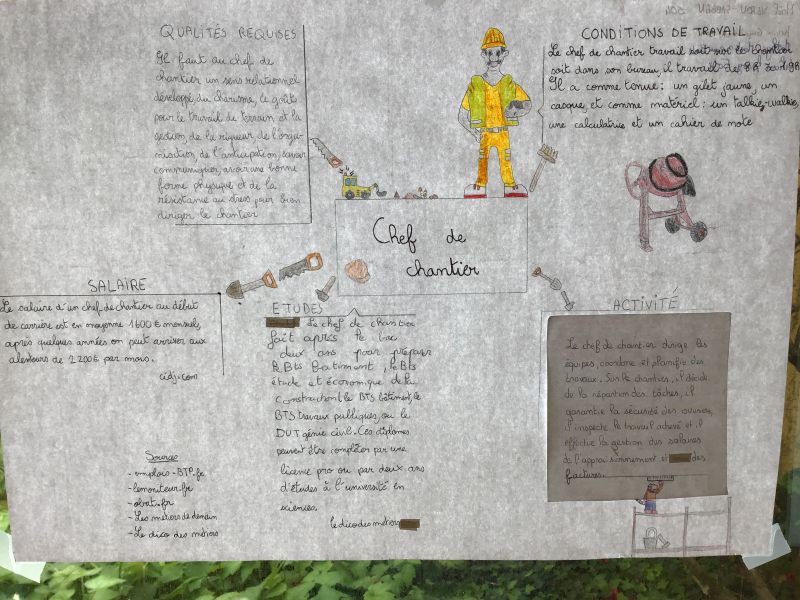 QUALITÉS REQUISES
Il faut au chef de
chantier un sens relationnel
développé, du charisme, le goûts
pour le travail du terrain et la
gestion, de la rigueur de l'orga-
nisation, de l'anticipation, savoir
communiquer, avoir une bonne
forme physique et de la
résistance au stress pour bien
diriger le chantier
CONDITIONS DE TRAVAIL
Le chef de chantier travail soit sur le chantier
soit dans son bureau, il travail de
Il a comme tenue : un gilet jaune, un
casque, et comme matériel : un talkie-walkie,
une calculatrice et un cahier de note
Chef de
chantier
SALAIRE
Le salaire d'un chef de chantier au début
de carrière est en moyenne 1600 € mensuels,
après quelques années on peut arriver aux
alentours de 2 200€ par mois.
cidj.com
ETUDES
Le chef de chantier
fait après le bac
deux ans pour préparer
le Bts Batiment, le Bts
étude et économique de la
construction, le BTS bâtiment, le
BTS travaux publiques, ou le
DUT génie civil. Ces diplômes
peuvent être complèter par une
licence pro ou par deux ans
d'études à l'université en
sciences.
le dico des métiers
ACTIVITÉ
Le chef de chantier dirige les
équipes, coordone et planifie des
travaux. Sur le chantier, il décide
de la répartion des tâches, il
garantie la sécurité des ouvriers,
il inspecte le travail achevé et il
effectue la gestion des salaires
de l'approvisionnement et des
factures.
Source
- emplois-BTP.fr
- lemoniteur.fr
- obat.fr
- Les métiers de demain
- Le dico des métiers